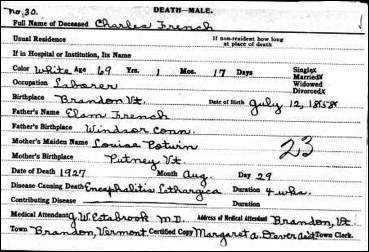 no. 30. DEATH—MALE.
Full Name of Deceased Charles French
Usual Residence If non-resident how long at place of death
If in Hospital or Institution, Its Name
Color White Age 69 Yrs. 1 Mos. 17 Days Single Married Widowed Divorced
Occupation Laborer
Birthplace Brandon Vt. Date of Birth July 12, 1858
Father's Name Elam French
Father's Birthplace Windsor Conn.
Mother's Maiden Name Louise Potwin
Mother's Birthplace Putney Vt. 23
Date of Death 1927 Month Aug. Day 29
Disease Causing Death Encephalitis Lethargica Duration 4 wks.
Contributing Disease Duration
Medical Attendant J.W. Estabrook M.D. Address of Medical Attendant Brandon, Vt.
Town Brandon, Vermont Certified Copy Margaret A. Town Clerk.